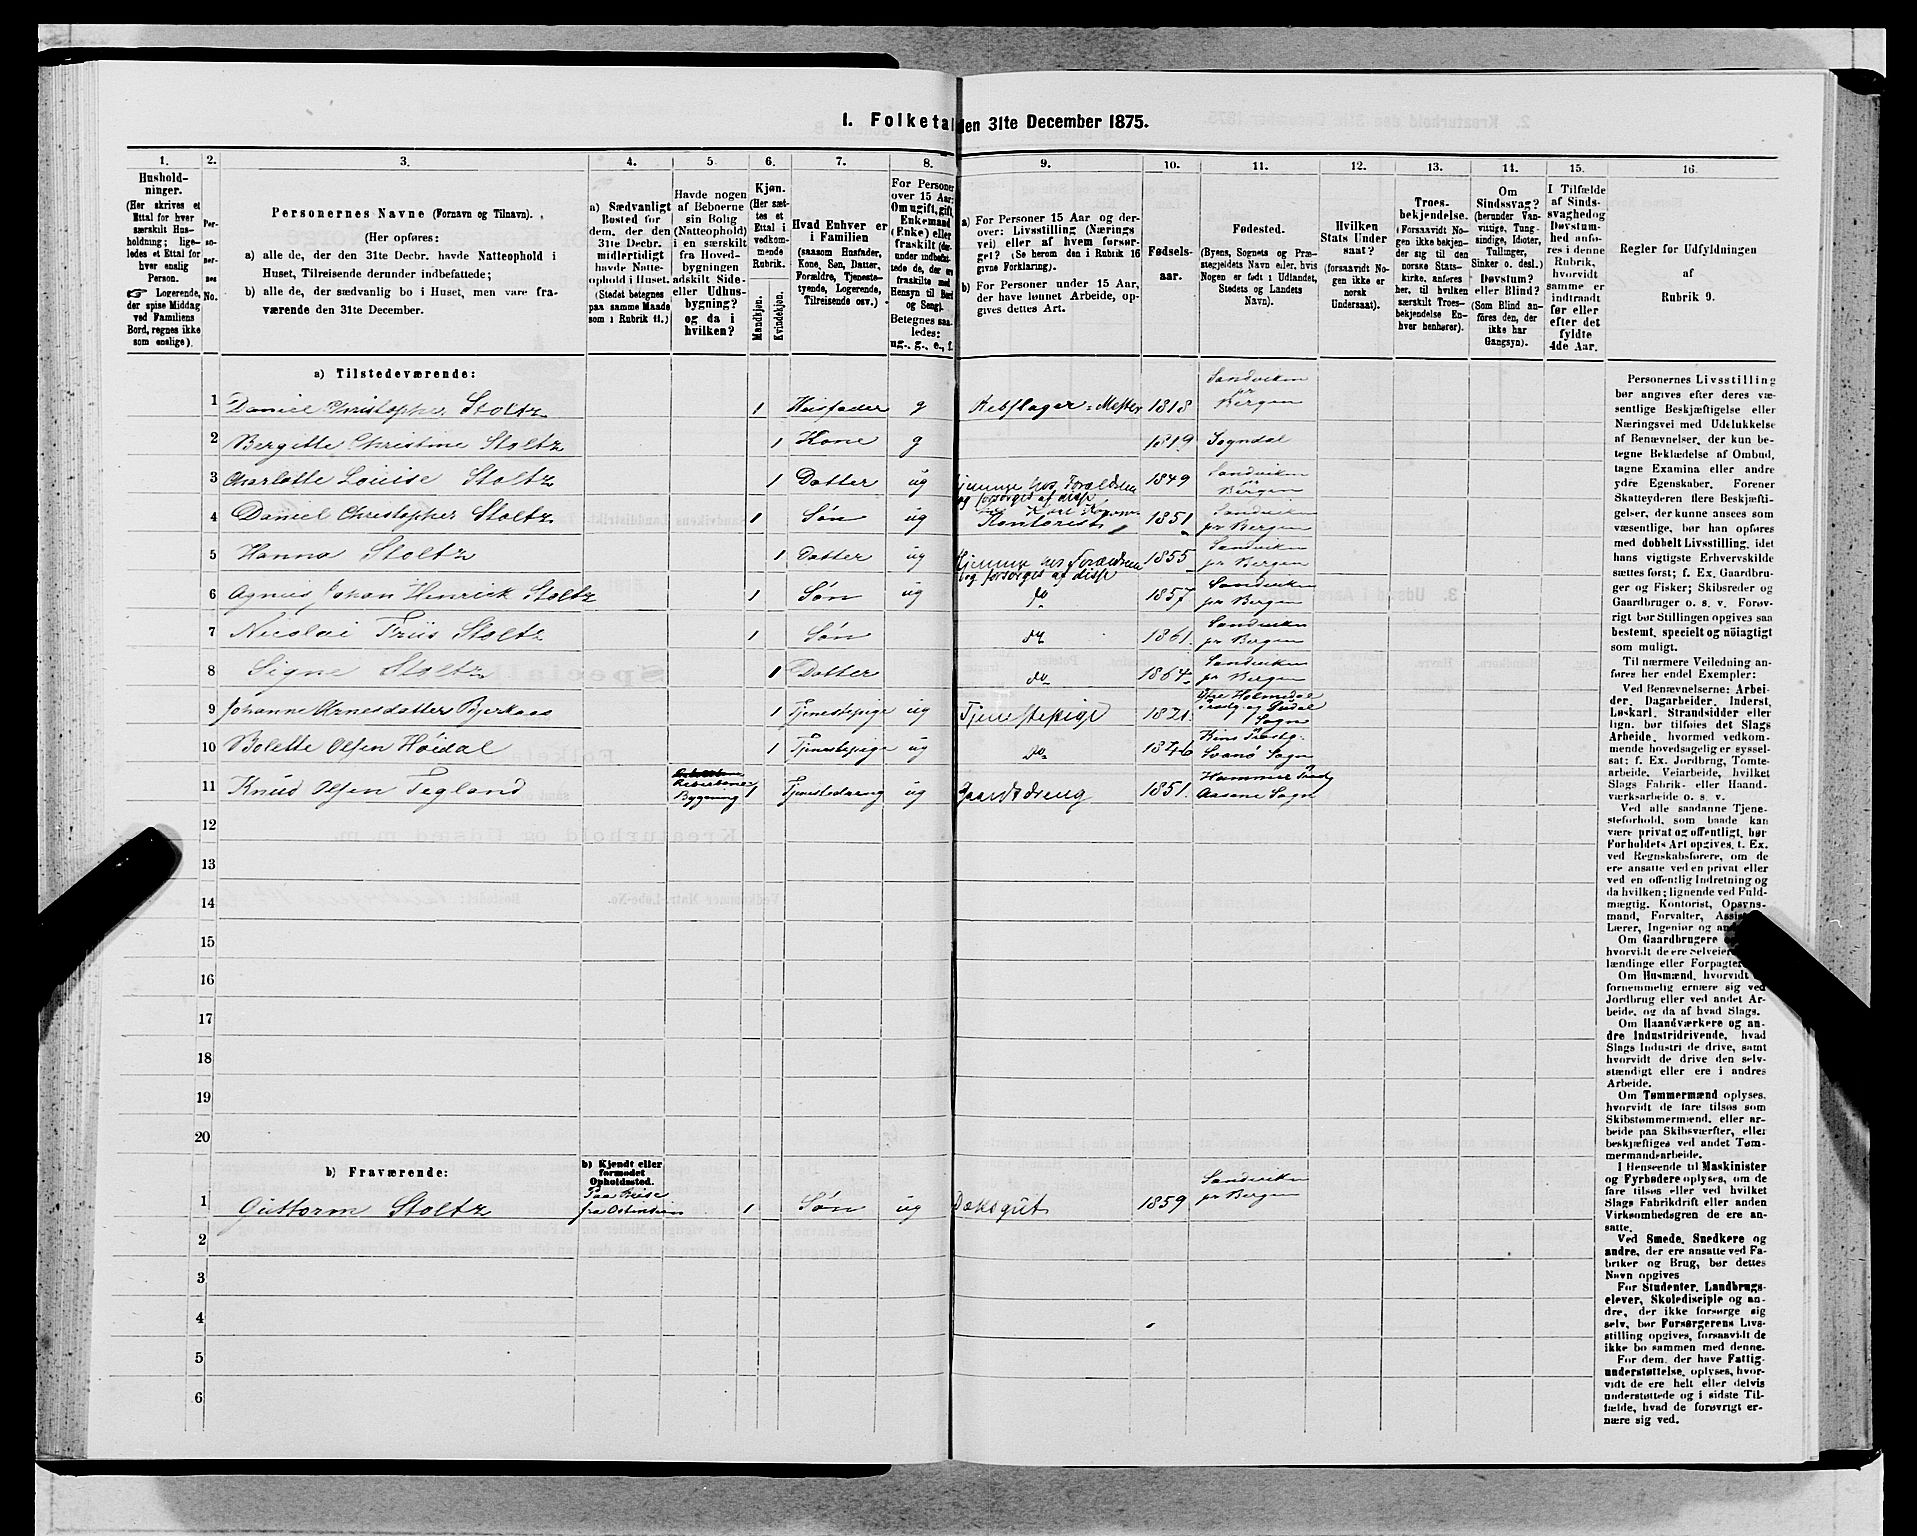 1. Folketal den 31te December 1875.
1.
Hushold-
ninger.
(Her skrives et
Ettal for hver
særskilt Hus-
holdning; lige-
ledes et Ettal for
hver enslig
Person.
☞ Logerende,
der spise Middag
ved Familiens
Bord, regnes ikke
som enslige).
2.
Per-
so-
ner-
nes
No.
3.
Personernes Navne (Fornavn og Tilnavn).
(Her opføres:
a) alle de, der den 31te Decbr. havde Natteophold i
Huset, Tilreisende derunder indbefattede;
b) alle de, der sædvanlig bo i Huset, men vare fra-
værende den 31te December.
4.
a) Sædvanligt
Bosted for
dem, der den
31te Decbr.
midlertidigt
havde Natte-
ophold i Huset.
(Stedet betegnes
paa samme Maade
som i Rubrik 11.)
5.
Havde nogen
af Beboerne
sin Bolig
(Natteophold)
i en særskilt
fra Hoved-
bygningen
adskilt Side-
eller Udhus-
bygning?
og da i
hvilken?
6.
Kjøn.
(Her sæt-
tes et
Ettal i
vedkom-
mende
Rubrik.
Mandkjøn.
Kvindekjøn.
7.
Hvad Enhver er
i Familien
(saasom Husfader,
Kone, Søn, Datter,
Forældre, Tjeneste-
tyende, Logerende,
Tilreisende osv.)
8.
For Personer
over 15 Aar:
Om ugift, gift,
Enkemand
(Enke) eller
fraskilt (der-
under indbefat-
tede de, der ere
fraskilte med
Hensyn til Bord
og Seng).
Betegnes saa-
ledes:
ug., g., e., f.
9.
a) For Personer 15 Aar og der-
over: Livsstilling (Nærings
vei) eller af hvem forsør-
get? (Se herom den i Rubrik 16
givne Forklaring).
b) For Personer under 15 Aar,
der have lønnet Arbeide, op-
gives dettes Art.
10.
Fødsels-
aar.
11.
Fødested.
(Byens, Sognets og Præ-
stegjeldets Navn eller, hvis
Nogen er født i Udlandet,
Stedets og Landets
Navn).
12.
Hvilken
Stats Under
saat?
(forsaavidt No-
gen ikke er
norsk
Undersaat).
13.
Troes-
bekjendelse.
(Forsaavidt No-
gen ikke bekjen-
der sig til den
norske Stats-
kirke, anføres
her, til hvilken
særskilt Troes-
bekjendelse En-
hver henhører).
14.
Om
Sindssvag?
(herunder Van-
vittige, Tung-
sindige, Idioter,
Tullinger,
Sinker o. desl.)
Døvstum?
eller Blind?
(Som Blind an-
føres den, der
ikke har
Gangsyn).
15.
I Tilfælde
af Sinds-
svaghed og
Døvstum-
hed anfø-
res i denne
Rubrik,
hvorvidt
samme er
indtraadt
før eller
efter det
fyldte
4de Aar.
16.
Regler for Udfyldningen
af
Rubrik 9.
a) Tilstedeværende:
1 Daniel Christopher Stoltz 1 Husfader g Rebslager-Mester 1818 Sandviken pr Bergen
2 Bergitte Christine Stoltz 1 Kone g 1819 Sogndal
3 Charlotte Louise Stoltz 1 Datter ug Hjemme hos Forældrene og forsørges af disse 1849 Sandviken pr Bergen
4 Daniel Christopher Stoltz 1 Søn ug Kontorist 1851 Sandviken pr Bergen
5 Hanna Stoltz 1 Datter ug Hjemme hos Forældrene og forsørges af disse 1855 Sandviken pr Bergen
6 Agnus Johan Henrick Stoltz 1 Søn ug do 1857 Sandviken pr Bergen
7 Nicolai Friis Stoltz 1 Søn do 1861 Sandviken pr Bergen
8 Signe Stoltz 1 Datter do 1864 Sandviken pr Bergen
9 Johanne Arnesdatter Bjerkaas 1 Tjenestepige ug Tjenestepige 1821 Ytre Holmedal Præstg og Sogn
10 Bolette Olsen Høidal 1 Tjenestepige ug do 1846 Kins Præstg. Svanø Sogn
11 Knud Olsen Tegland Bygning 1 Tjenestedreng ug Gaardsdreng 1851 Hammer Præstg Aasene Sogn
12
13
14
15
16
17
18
19
20
b) Fraværende:
b) Kjendt eller
formodet
Opholdssted.
1 Guttorm Stoltz Paa Reise fra Ostindien 1 Søn ug Dæksgut 1859 Sandviken pr Bergen
2
3
4
5
6
Personernes Livsstilling
bør angives efter deres væ-
sentlige Beskjæftigelse eller
Næringsvei med Udelukkelse
af Benævnelser, der kun be-
tegne Beklædelse af Ombud,
tagne Examina eller andre
ydre Egenskaber. Forener
Skatteyderen flere Beskjæfti-
gelser, der kunne ansees som
væsentlige, bør han opføres
med dobbelt Livsstilling, idet
hans vigtigste Erhvervskilde
sættes først; f. Ex. Gaardbru-
ger og Fisker; Skibsreder og
Gaardbruger o. s. v. Forøv-
rigt bør Stillingen opgives saa
bestemt, specielt og nöiagtigt
som muligt.
Til nærmere Veiledning an-
føres her endel Exempler:
Ved Benævnelserne: Arbei-
der, Dagarbeider, Inderst,
Løskarl, Strandsidder eller
lign. bør tilføies det Slags
Arbeide, hvormed vedkom-
mende hovedsagelig er syssel-
sat; f. Ex. Jordbrug, Tomte-
arbeide, Veiarbeide, hvilket
Slags Fabrik- eller Haand-
værksarbeide o. s. v.
Ved alle saadanne Tjene-
steforhold, som baade kan
være privat og offentligt, bør
Forholdets Art opgives, t. Ex.
ved Regnskabsførere, om de
ere ansatte ved en privat eller
ved en offentlig Indretning og
da hvilken; lignende ved Fuld-
mægtig, Kontorist, Opsyns-
mand, Forvalter,
Lærer, Ingeniør og
Om Gaardbrugere
hvorvidt de ere Selveier
lændinge eller Forpagter
Om Husmænd, hvorvidt
fornemmelig ernære sig ved
Jordbrug eller ved andet Ar-
beide, og da af hvad Slags.
Om Haandværkere og an-
dre Industridrivende, hvad
Slags Industri de drive, samt
hvorvidt de drive den selv-
stændigt eller ere i andres
Arbeide.
Om Tømmermænd oplyses,
hvorvidt de fare tilsøs som
Skibstømmermænd, eller ar-
beide paa Skibsværfter, eller
beskjæftiges ved andet Tøm-
mermandsarbeide.
I Henseende til Maskinister
og Fyrbødere oplyses, om de
fare tilsøs eller ved hvilket
Slags Fabrikdrift eller anden
Virksomhedsgren de ere an-
satte.
Ved Smede, Snedkere og
andre, der ere ansatte ved Fa-
briker og Brug, bør dettes
Navn opgives
For Studenter, Landbrugs-
elever, Skoledisciple og an-
dre, der ikke forsørge sig
selv, bør Forsørgerens Livs-
stilling opgives, forsaavidt de
ikke bo sammen med denne.
For dem, der have Fattig-
understøttelse, oplyses, hvor-
vidt de ere helt eller delvis
understøttede og i sidste Til-
fælde, hvad de forøvrigt er-
nære sig ved.